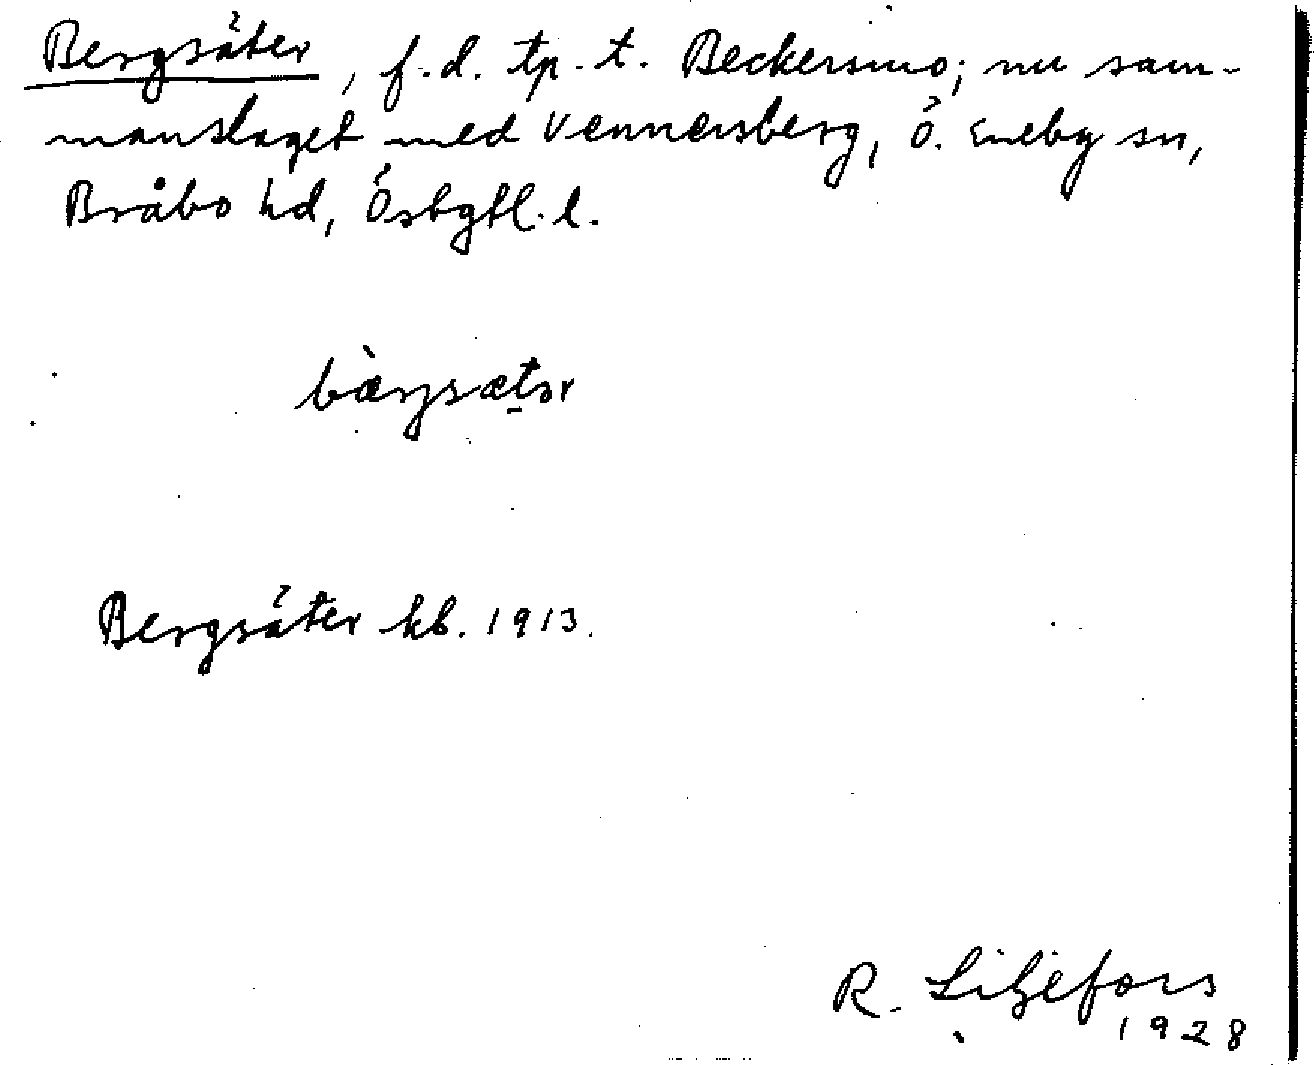 Bergsäter, f.d. tp. t. Beckersmo; nu sam-
manslaget med Vennersberg, Ö. Eneby sn,
Bråbo hd, Östgtl. l.
bàrjsætər
Bergsäter kb. 1913.
R. Liljefors
1928